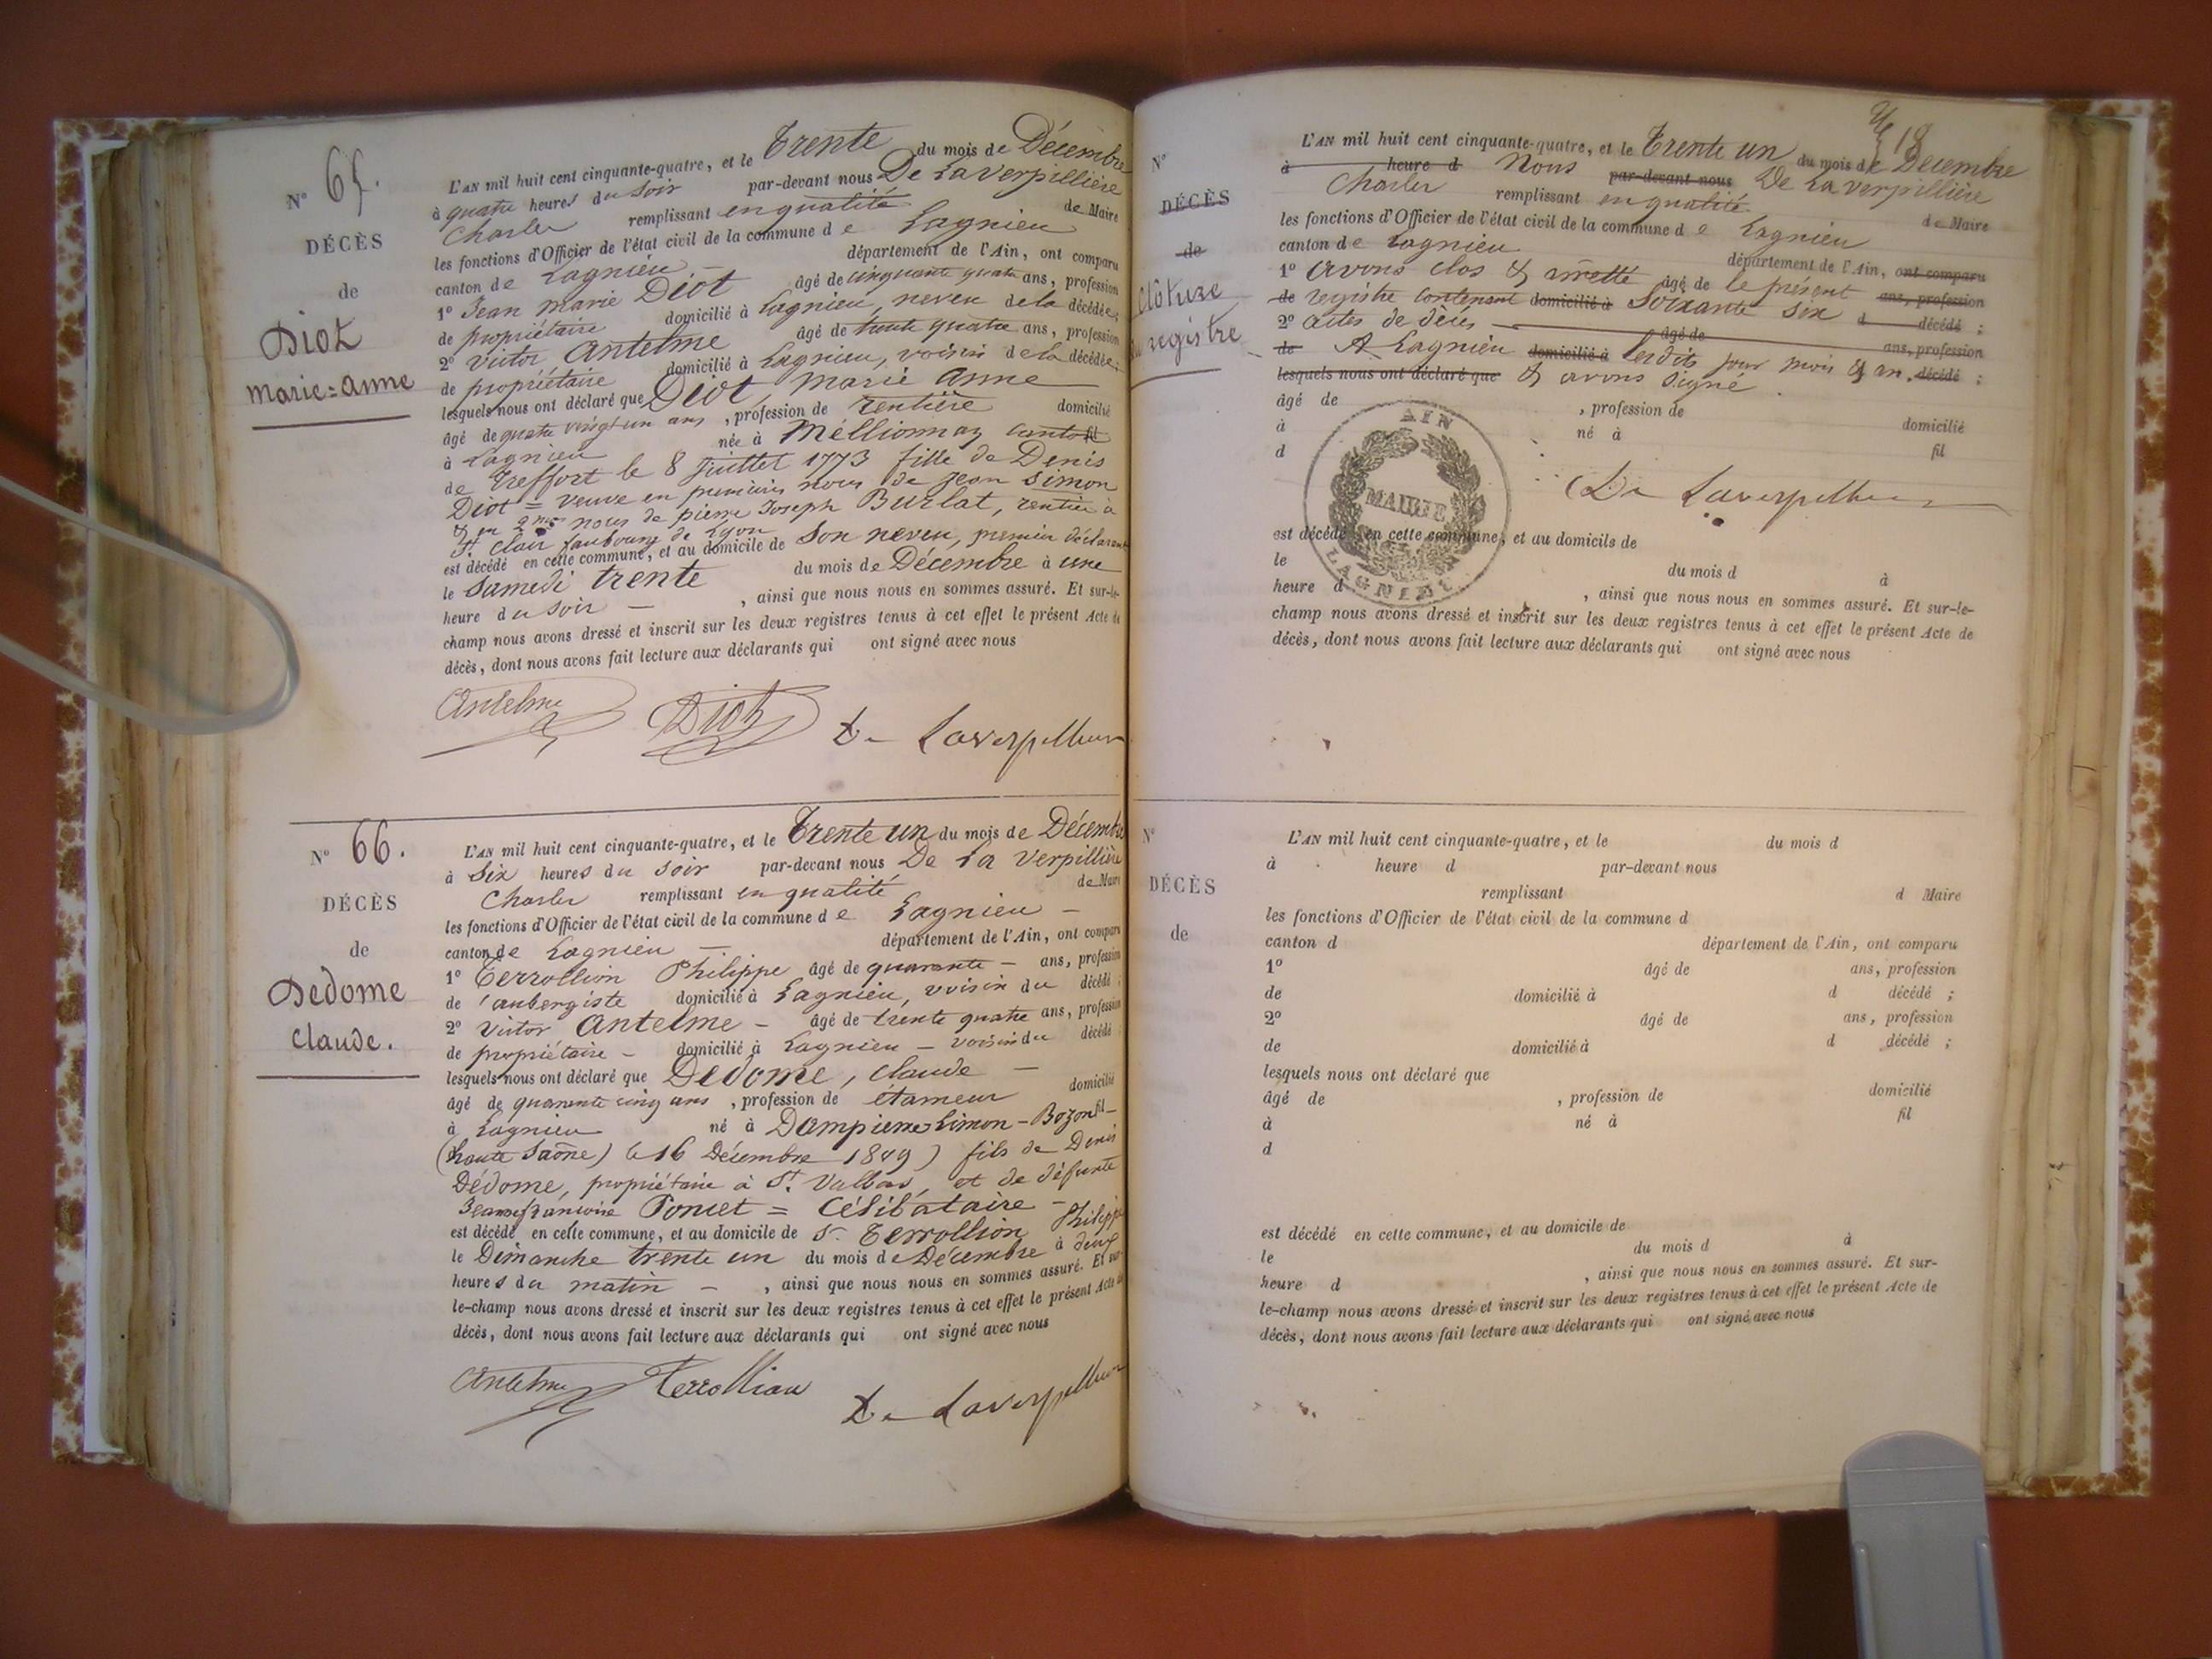 N° 65.
DÉCÈS
de
Diot
marie=anne
L'AN mil huit cent cinquante-quatre, et le Trente du mois de Décembre
à quatre heures du Soir par-devant nous De LaVerpillière
Charles remplissant en qualité de Maire
les fonctions d'Officier de l'état civil de la commune de Lagnieu
canton de Lagnieu – département de l'Ain, ont comparu
1° Jean marie Diot âgé de cinquante quatre ans, profession
de propriétaire domicilié à Lagnieu, neveu de la décédée;
2° Victor Antelme âgé de trente quatre ans, profession
de propriétaire domicilié à Lagnieu, voisin de la décédée;
lesquels nous ont déclaré que Diot, marie anne
âgé de quatre vingt un ans, profession de rentière domicilié
à Lagnieu née à Méllionnaz canton fil
de Treffort le 8 Juillet 1773 fille de Denis
Diot = veuve en premières noces de Jean Simon
& en 2mes noces de pierre Joseph Burlat, rentier à
St. Clair faubourg de Lyon
est décédé en cette commune, et au domicile de Son neveu, premier déclarant
le Samedi trente du mois de Décembre à une
heure du soir – , ainsi que nous nous en sommes assuré. Et sur-le-
champ nous avons dressé et inscrit sur les deux registres tenus à cet effet le présent Acte de
décès, dont nous avons fait lecture aux déclarants qui ont signé avec nous
Antelme Diot De Laverpilliere
N° 66.
DÉCÈS
de
Dedome
claude.
L'AN mil huit cent cinquante-quatre, et le Trente un du mois de Décembre
à Six heures du Soir par-devant nous De La Verpillière
Charles remplissant en qualité de Maire
les fonctions d'Officier de l'état civil de la commune de Lagnieu –
canton de Lagnieu – département de l'Ain, ont comparu
1° Terrollion Philippe âgé de quarante – ans, profession
de l'aubergiste domicilié à Lagnieu, voisin du décédé;
2° Victor Antelme – âgé de trente quatre ans, profession
de propriétaire – domicilié à Lagnieu – voisin du décédé
lesquels nous ont déclaré que Dedome, claude –
âgé de quarante cinq ans, profession de étameur domicilié
à Lagnieu né à Dampierre Limon – Bozon fil –
(haute Saône) le 16 Décembre 1849) fils de Denis
Dédome, propriétaire à St. Vulbas, et de défunte
Jeanne françoise Poncet = Célibataire –
est décédé en cette commune, et au domicile de Sr. Terrollion Philippe
le Dimanche trente un du mois de Décembre à deux
heures du matin – , ainsi que nous nous en sommes assuré. Et sur-
le-champ nous avons dressé et inscrit sur les deux registres tenus à cet effet le présent Acte de
décès, dont nous avons fait lecture aux déclarants qui ont signé avec nous
Antelme Terrollion De Laverpilliere
18
N°
DÉCÈS
de
Clôture
du registre
L'AN mil huit cent cinquante-quatre, et le Trente un du mois de Décembre
à heure d Nous par-devant nous De Laverpillière
Charles remplissant en qualité de Maire
les fonctions d'Officier de l'état civil de la commune de Lagnieu
canton de Lagnieu département de l'Ain, ont comparu
1° avons clos & arretté âgé de le présent ans, profession
de registre contenant domicilié à Soixante Six d décédé ;
2° actes de décès – âgé de ans, profession
de A Lagnieu domicilié à lesdits jour mois & an. décédé ;
lesquels nous ont déclaré que & avons signé.
âgé de , profession de domicilié
à né à fil
d
AIN
MAIRIE
LAGNIEU
De Laverpilliere
est décédé en cette commune, et au domicils de
le du mois d à
heure d , ainsi que nous nous en sommes assuré. Et sur-le-
champ nous avons dressé et inscrit sur les deux registres tenus à cet effet le présent Acte de
décès, dont nous avons fait lecture aux déclarants qui ont signé avec nous
N°
DÉCÈS
de
L'AN mil huit cent cinquante-quatre, et le du mois d
à heure d par-devant nous
remplissant d Maire
les fonctions d'Officier de l'état civil de la commune d
canton d département de l'Ain, ont comparu
1° âgé de ans, profession
de domicilié à d décédé ;
2° âgé de ans, profession
de domicilié à d décédé ;
lesquels nous ont déclaré que
âgé de , profession de domicilié
à né à fil
d
est décédé en cette commune, et au domicile de
le du mois d à
heure d , ainsi que nous nous en sommes assuré. Et sur-
le-champ nous avons dressé et inscrit sur les deux registres tenus à cet effet le présent Acte de
décès, dont nous avons fait lecture aux déclarants qui ont signé avec nous